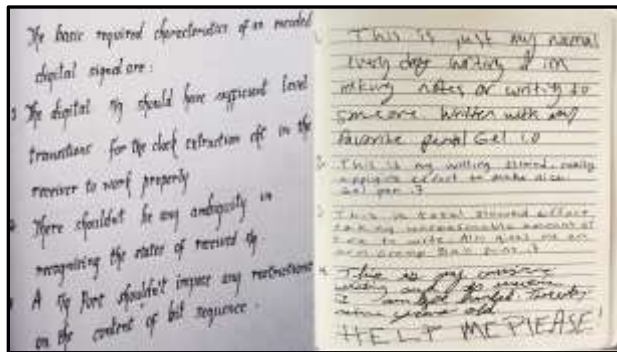 The basic required characteristics of an encoded
digital signal are:
The digital sig should have sufficient level
transitions for the clock extraction ckt in the
receiver to work properly
There shouldn't be any ambiguity in
recognising the states of received sig
A sig Port shouldn't impose any restrictions
on the content of bit sequence.
1. This is just my normal
every day writing if im
making notes or writing to
someone. Written with my
favorite pental Gel 1.0
2. This is my writing slowed, really
applying effort to make nice.
Gel pen .7
3. This is total slowed effort
taking unreasonable amount of
time to write. Also gives me an
arm cramp
4. This is my cursive
writing and its uneven
I am
years old
HELP ME PLEASE!